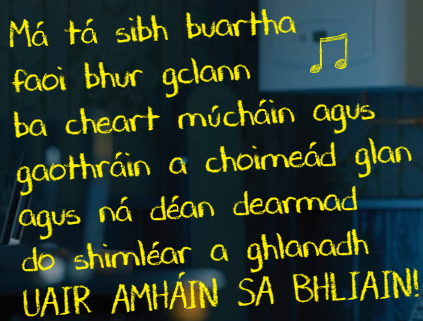 Má tá sibh buartha
faoi bhur gclann
ba cheart múcháin agus
gaothráin a choimeád glan
agus ná déan dearmad
do shimléar a ghlanadh
UAIR AMHÁIN SA BHLIAIN!